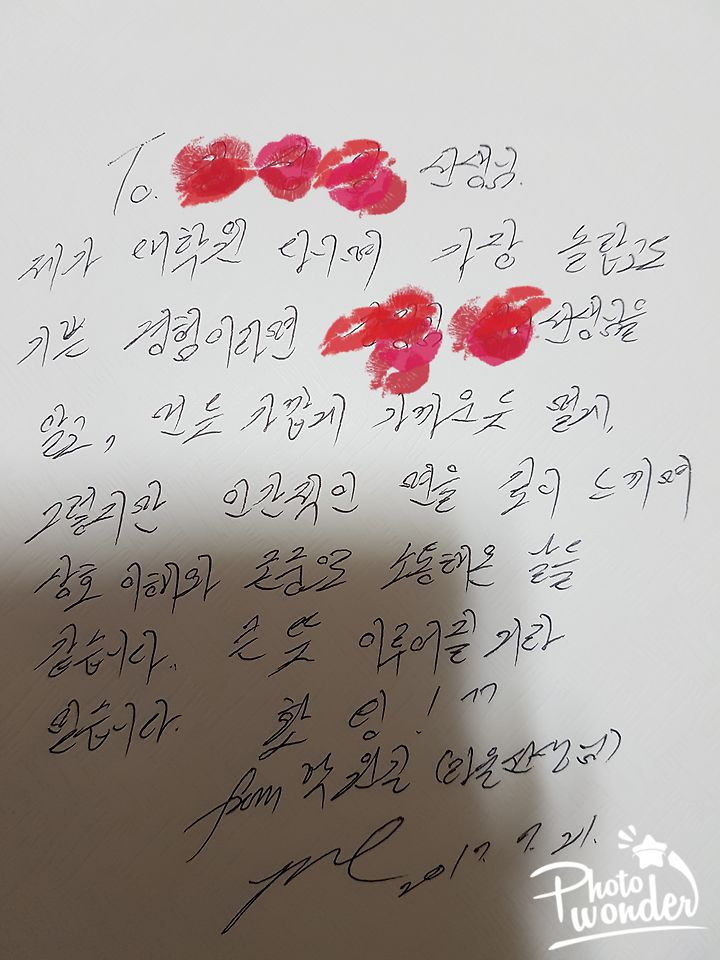 To. 선생님.
제가 대학원 다니며 가장 놀랍고도
기쁜 경험이라면 선생님을
알고, 먼듯 가깝게 가까운듯 멀게,
그렇지만 인간적인 면을 깊이 느끼며
상호 이해와 존중으로 소통해온 날들
같습니다. 큰 뜻 이루어질 거라
믿습니다. 화이팅! ^^
from 박원길 (마을선생님)
2017. 7. 21.
Photo
wonder